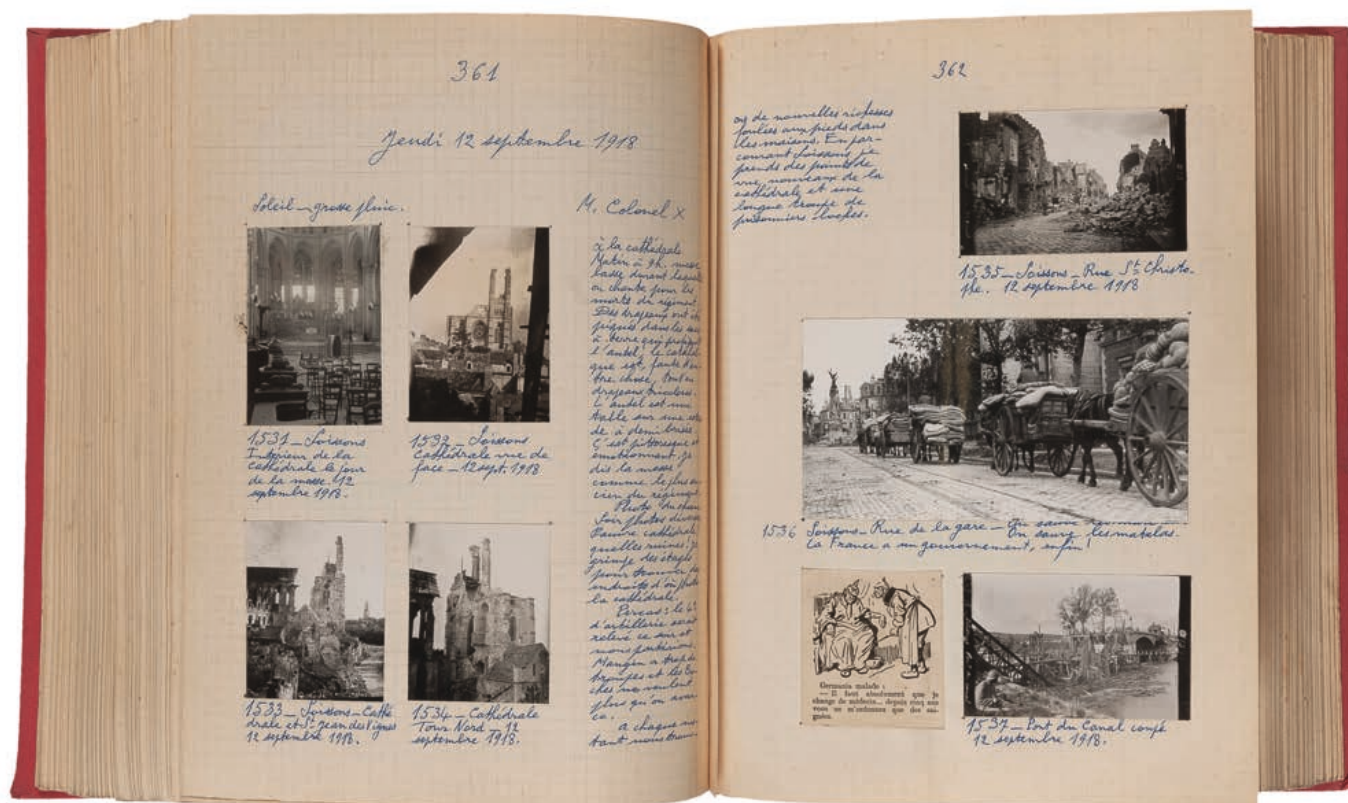 361
Jeudi 12 septembre 1918
Soleil – grosse pluie.
1531 – Soissons
Intérieur de la
cathédrale le jour
de la messe. 12
septembre 1918.
1532 – Soissons
Cathédrale vue de
face – 12 sept. 1918
1533 – Soissons – Cathé-
drale et St Jean des Vignes
12 septembre 1918.
1534 – Cathédrale
Tour Nord – 12
septembre 1918.
M. Colonel X
à la cathédrale
Matin à 9h. messe
basse durant laquelle
on chante pour les
morts du régiment.
Des drapeaux ont été
piqués dans les sacs
à terre qui protègent
l'autel, la cathédr
que est, faute d'au
tre chose, tout en
drapeaux tricolores.
L'autel est une
table sur une est
de à demi brisée.
C'est pittoresque et
émotionnant. Je
dis la messe
comme le plus an
cien du régiment.
Photo
Soir photos diverses
Pauvre cathédrale
quelles ruines! je
grimpe des étages
pour trouver
endroits d'où
la cathédrale.
Percas: le
d'artillerie sera
relevé ce soir et
nous partirions.
Mangin a trop de
troupes et les Bo
ches ne veulent
plus qu'on avan
ce.
A chaque ins
tant nous trouv-
362
ons de nouvelles richesses
foulées aux pieds dans
les maisons. En par-
courant Soissons je
prends des points de
vue nouveaux de la
cathédrale et une
longue troupe de
prisonniers boches.
1535 – Soissons – Rue St Christo-
phe. 12 septembre 1918
1536 Soissons – Rue de la gare – On sauve les matelas.
La France a un gouvernement, enfin!
Germania malade :
— Il faut absolument que je
change de médecin... depuis cinq ans
vous ne m'ordonnez que des sai-
gnées.
1537 – Port du Canal coupé
12 septembre 1918.